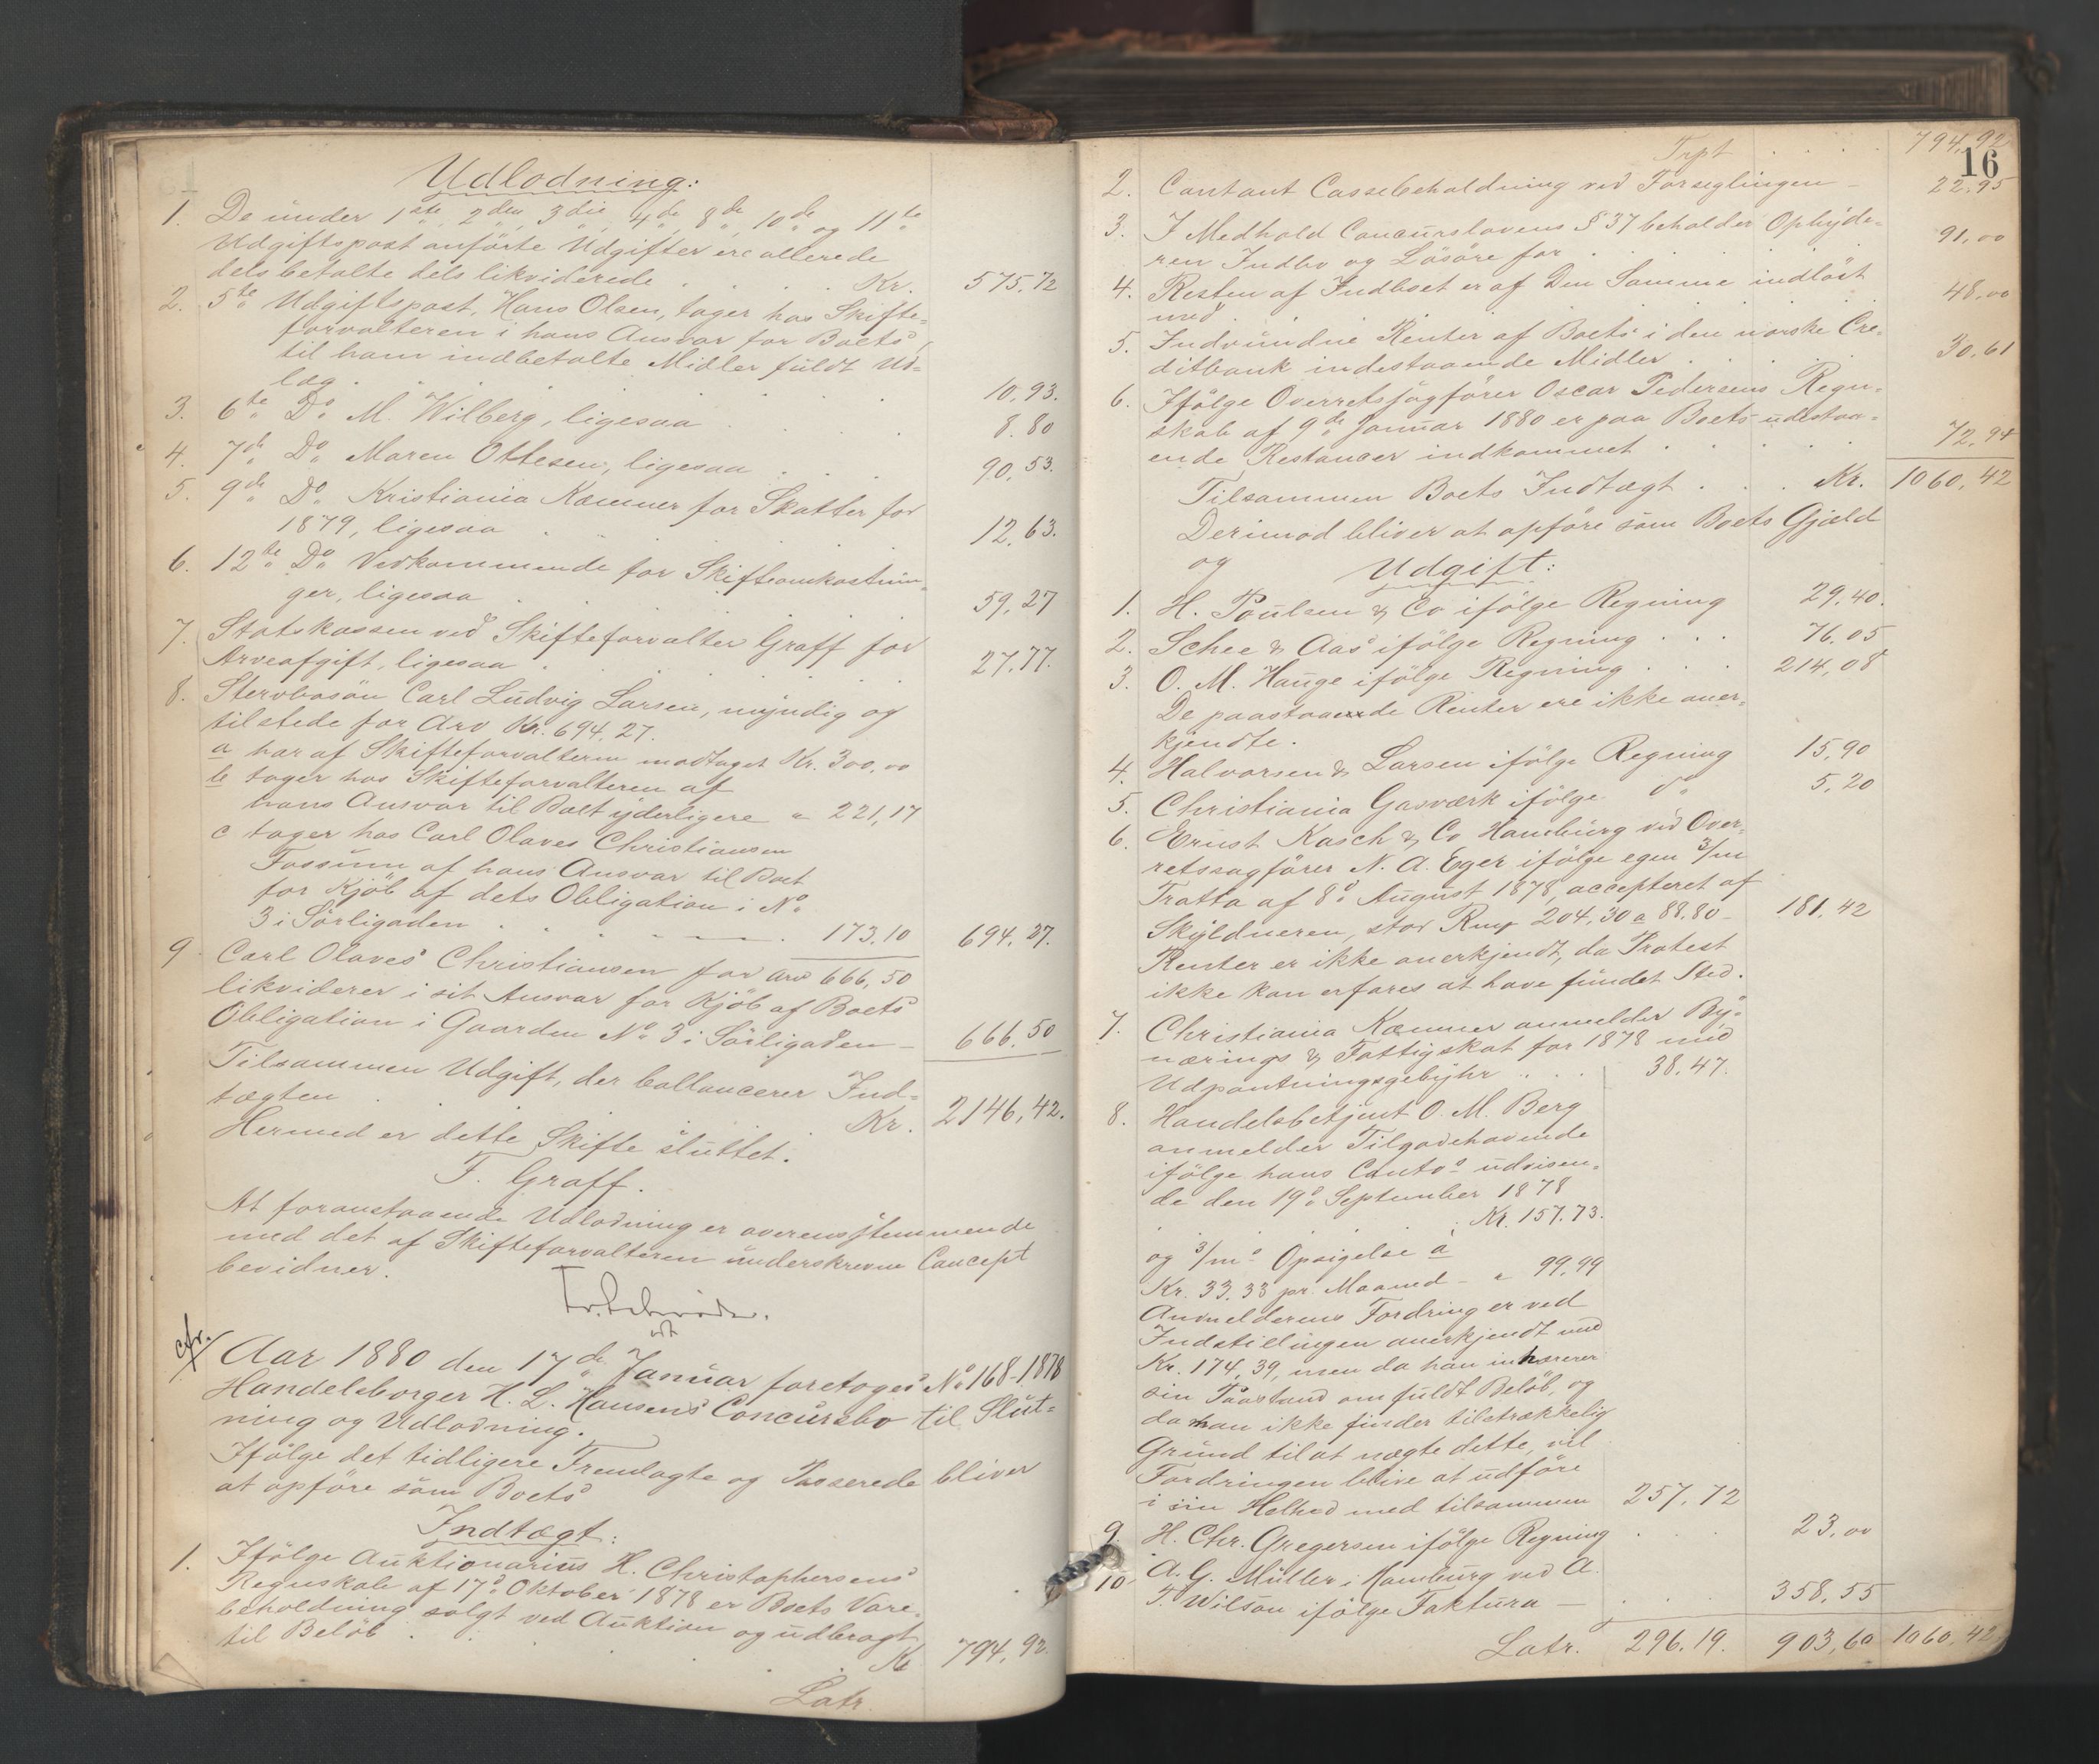 Udlodning:
1. De under 1ste, 2den, 3die, 4de, 8de, 10de og 11te
Udgiftspost anførte Udgifter ere allerede
dels betalte dels likviderede . . . . Kr. 575,72
2. 5te Udgiftspost, Hans Olsen, tager hos Skifte-
forvalteren i hans Ansvar for Boets
til ham indbetalte Midler fuldt Ud-
læg . . . . 10,93.
3. 6te Do M. Wilberg, ligesaa . . . 8.80
4. 7de Do Maren Ottesen, ligesaa . . . 90,53.
5. 9de Do Kristiania Kæmner for Skatter for
1879, ligesaa . . . 12,63.
6. 12te Do Vedkommende for Skifteomkostnin-
ger, ligesaa . . . 59,27
7. Statskassen ved Skifteforvalter Graff for
Arveafgift, ligesaa . . . 27.77.
8. Stervbosøn Carl Ludvig Larsen, myndig og
tilstede for Arv Kr. 694.27.
a har af Skifteforvalteren modtaget Kr. 300,00
b tager hos Skifteforvalteren af
hans Ansvar til Boet yderligere " 221,17
c tager hos Carl Olaves Christiansen
Fossum af hans Ansvar til Boet
for Kjøb af dets Obligation i No
3 i Sørligaden . . . 173,10 694.27.
9. Carl Olaves Christiansen for Arv 666,50
likviderer i sit Ansvar for Kjøb af Boets
Obligation i Gaarden No 3 i Sørligaden – 666.50
Tilsammen Udgift, der ballancerer Ind-
tægten . . . Kr. 2146,42.
Hermed er dette Skifte sluttet.
F. Graff.
At foranstaaende Udlodning er overensstemmende
med det af Skifteforvalteren underskrevne Concept
bevidner.
cfr.
Aar 1880 den 17de Januar foretoges No 168-1878
Handelsborger H. L. Hansens Concursbo til Slut-
ning og Udlodning.
Ifølge det tidligere Fremlagte og Passerede bliver
at opføre som Boets
Indtægt:
1. Ifølge Auktionarius H. Christophersens
Regnskab af 17de Oktober 1878 er Boets Vare-
beholdning solgt ved Auktion og udbragt
til Beløb . . . Kr. 794,92.
Latr.
16
Trpt . . . . 794,92
2. Contant Cassebeholdning ved Forseglingen – 22,95
3. I Medhold Concurslovens § 37 beholder Opbyde-
ren Indbo og Løsøre for . 91,00
4. Resten af Indboet er af Den Samme indløst
med . . . 48,00
5. Indvundne Renter af Boets i den norske Cre-
ditbank indestaaende Midler . . . 30,61
6. Ifølge Overretssagfører Oscar Pedersens Regn-
skab af 9de Januar 1880 er paa Boets udestaa-
ende Restancer indkommet . . . 72,94
Tilsammen Boets Indtægt . . . Kr. 1060,42
Derimod bliver at opføre som Boets Gjæld
og Udgift:
1. H. Poulsen & Co ifølge Regning 29,40.
2. Schee & Aas ifølge Regning . . . 76,05
3. O. M. Hauge ifølge Regning . . . 214,08
De paastaaede Renter ere ikke aner-
kjendte.
4. Halvorsen & Larsen ifølge Regning 15,90
5. Christiania Gasværk ifølge do 5,20
6. Ernst Kasch & Co Hamburg ved Over-
retssagfører N. A. Eger ifølge egen 3/m
Tratta af 8de August 1878, accepteret af
Skyldneren, stor Rmp 204,30 a 88,80 – 181,42
Renter er ikke anerkjendt, da Protest
ikke kan erfares at have fundet Sted.
7. Christiania Kæmner anmelder By-
nærings & Fattigskat for 1878 med
Udpantningsgebyhr . . . 38.47.
8. Handelsbetjent O. M. Berg
anmelder Tilgodehavende
ifølge hans Conto udvisen-
de den 19de September 1878
. . . Kr. 157.73.
og 3/m Opsigelse à
Kr. 33,33 pr. Maaned – " 99,99
Anmelderens Fordring er ved
Indstillingen anerkjendt med
Kr. 174,39, men da han inhærerer
sin Paastand om fuldt Beløb, og
da man ikke finder tilstrækkelig
Grund til at nægte dette, vil
Fordringen blive at udføre
i sin Helhed med tilsammen 257,72
9. H. Chr. Gregersen ifølge Regning . . . 23,00
10. A. G. Müller i Hamburg ved A.
F. Wilson ifølge Faktura – . . . 358,55
Latr. 296.19. 903,60 1060,42